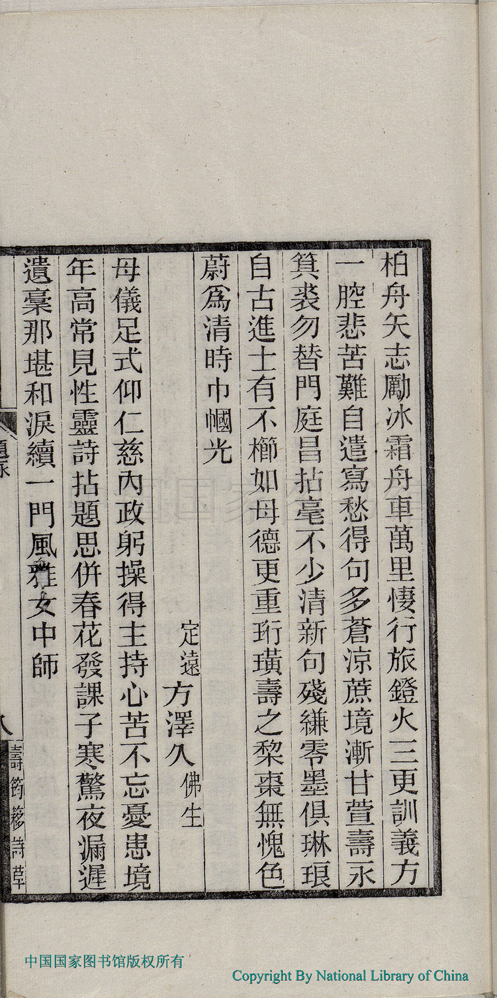 柏舟矢志勵冰霜舟車萬里悽行旅鐙火三更訓義方
一腔悲苦難自遣寫愁得句多蒼涼蔗境漸甘萱壽永
箕裘勿替門庭昌拈毫不少清新句殘縑零墨俱琳琅
自古進士有不櫛如母德更重珩璜壽之黎棗無愧色
蔚爲清時巾幗光
定遠方澤久佛生
母儀足式仰仁慈內政躬操得主持心苦不忘憂患境
年高常見性靈詩拈題思併春花發課子寒驚夜漏遲
遺稾那堪和淚續一門風雅女中師
題詠
八
壽筠簃詩草
中国国家图书馆版权所有
Copyright By National Library of China